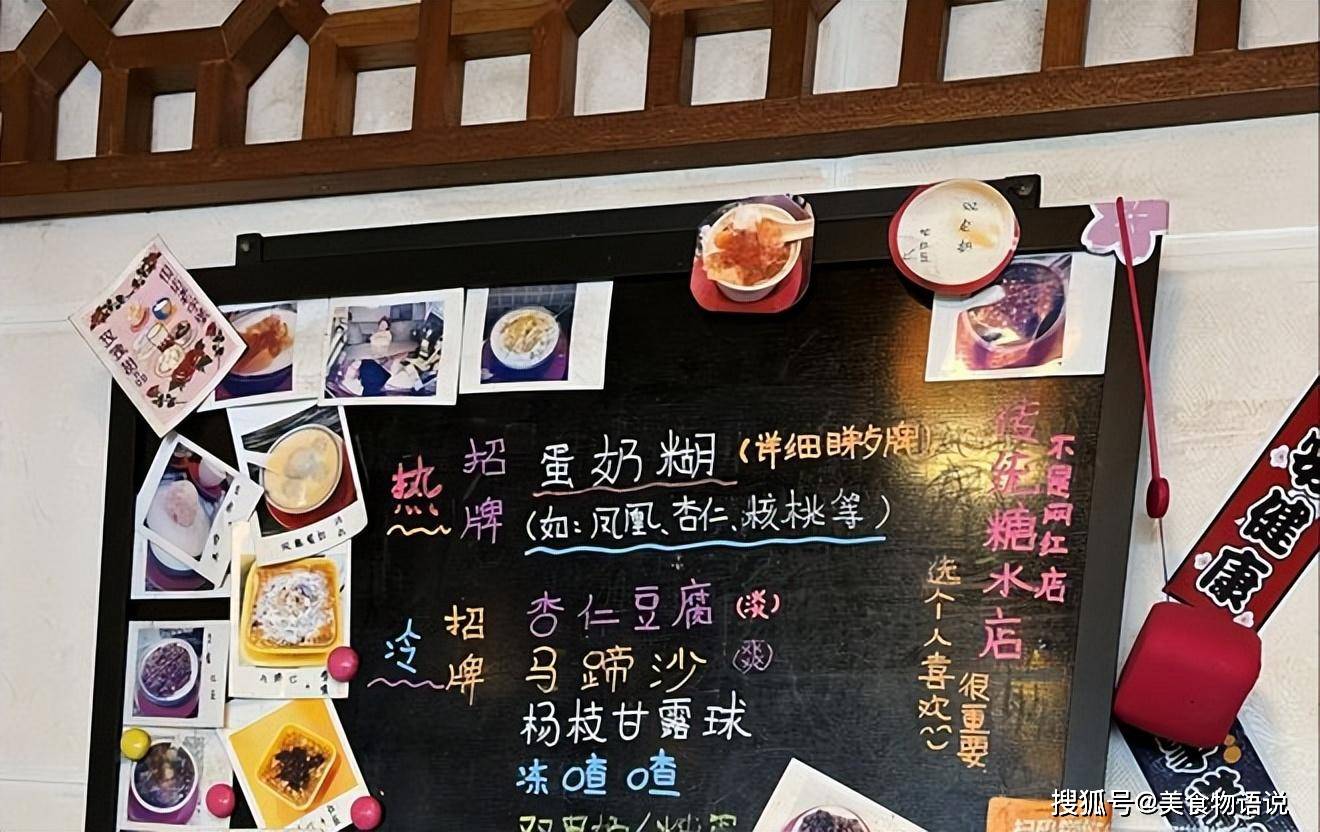 玫瑰甜品
热
招牌
蛋奶糊(详细睇牌)
(如:凤凰、杏仁、核桃等)
冷
招牌
杏仁豆腐(淡)
马蹄沙 爽
杨枝甘露球
冻喳喳
传统糖水店
不是网红店
选个人喜欢
很重要
健康
搜狐号@美食物语说